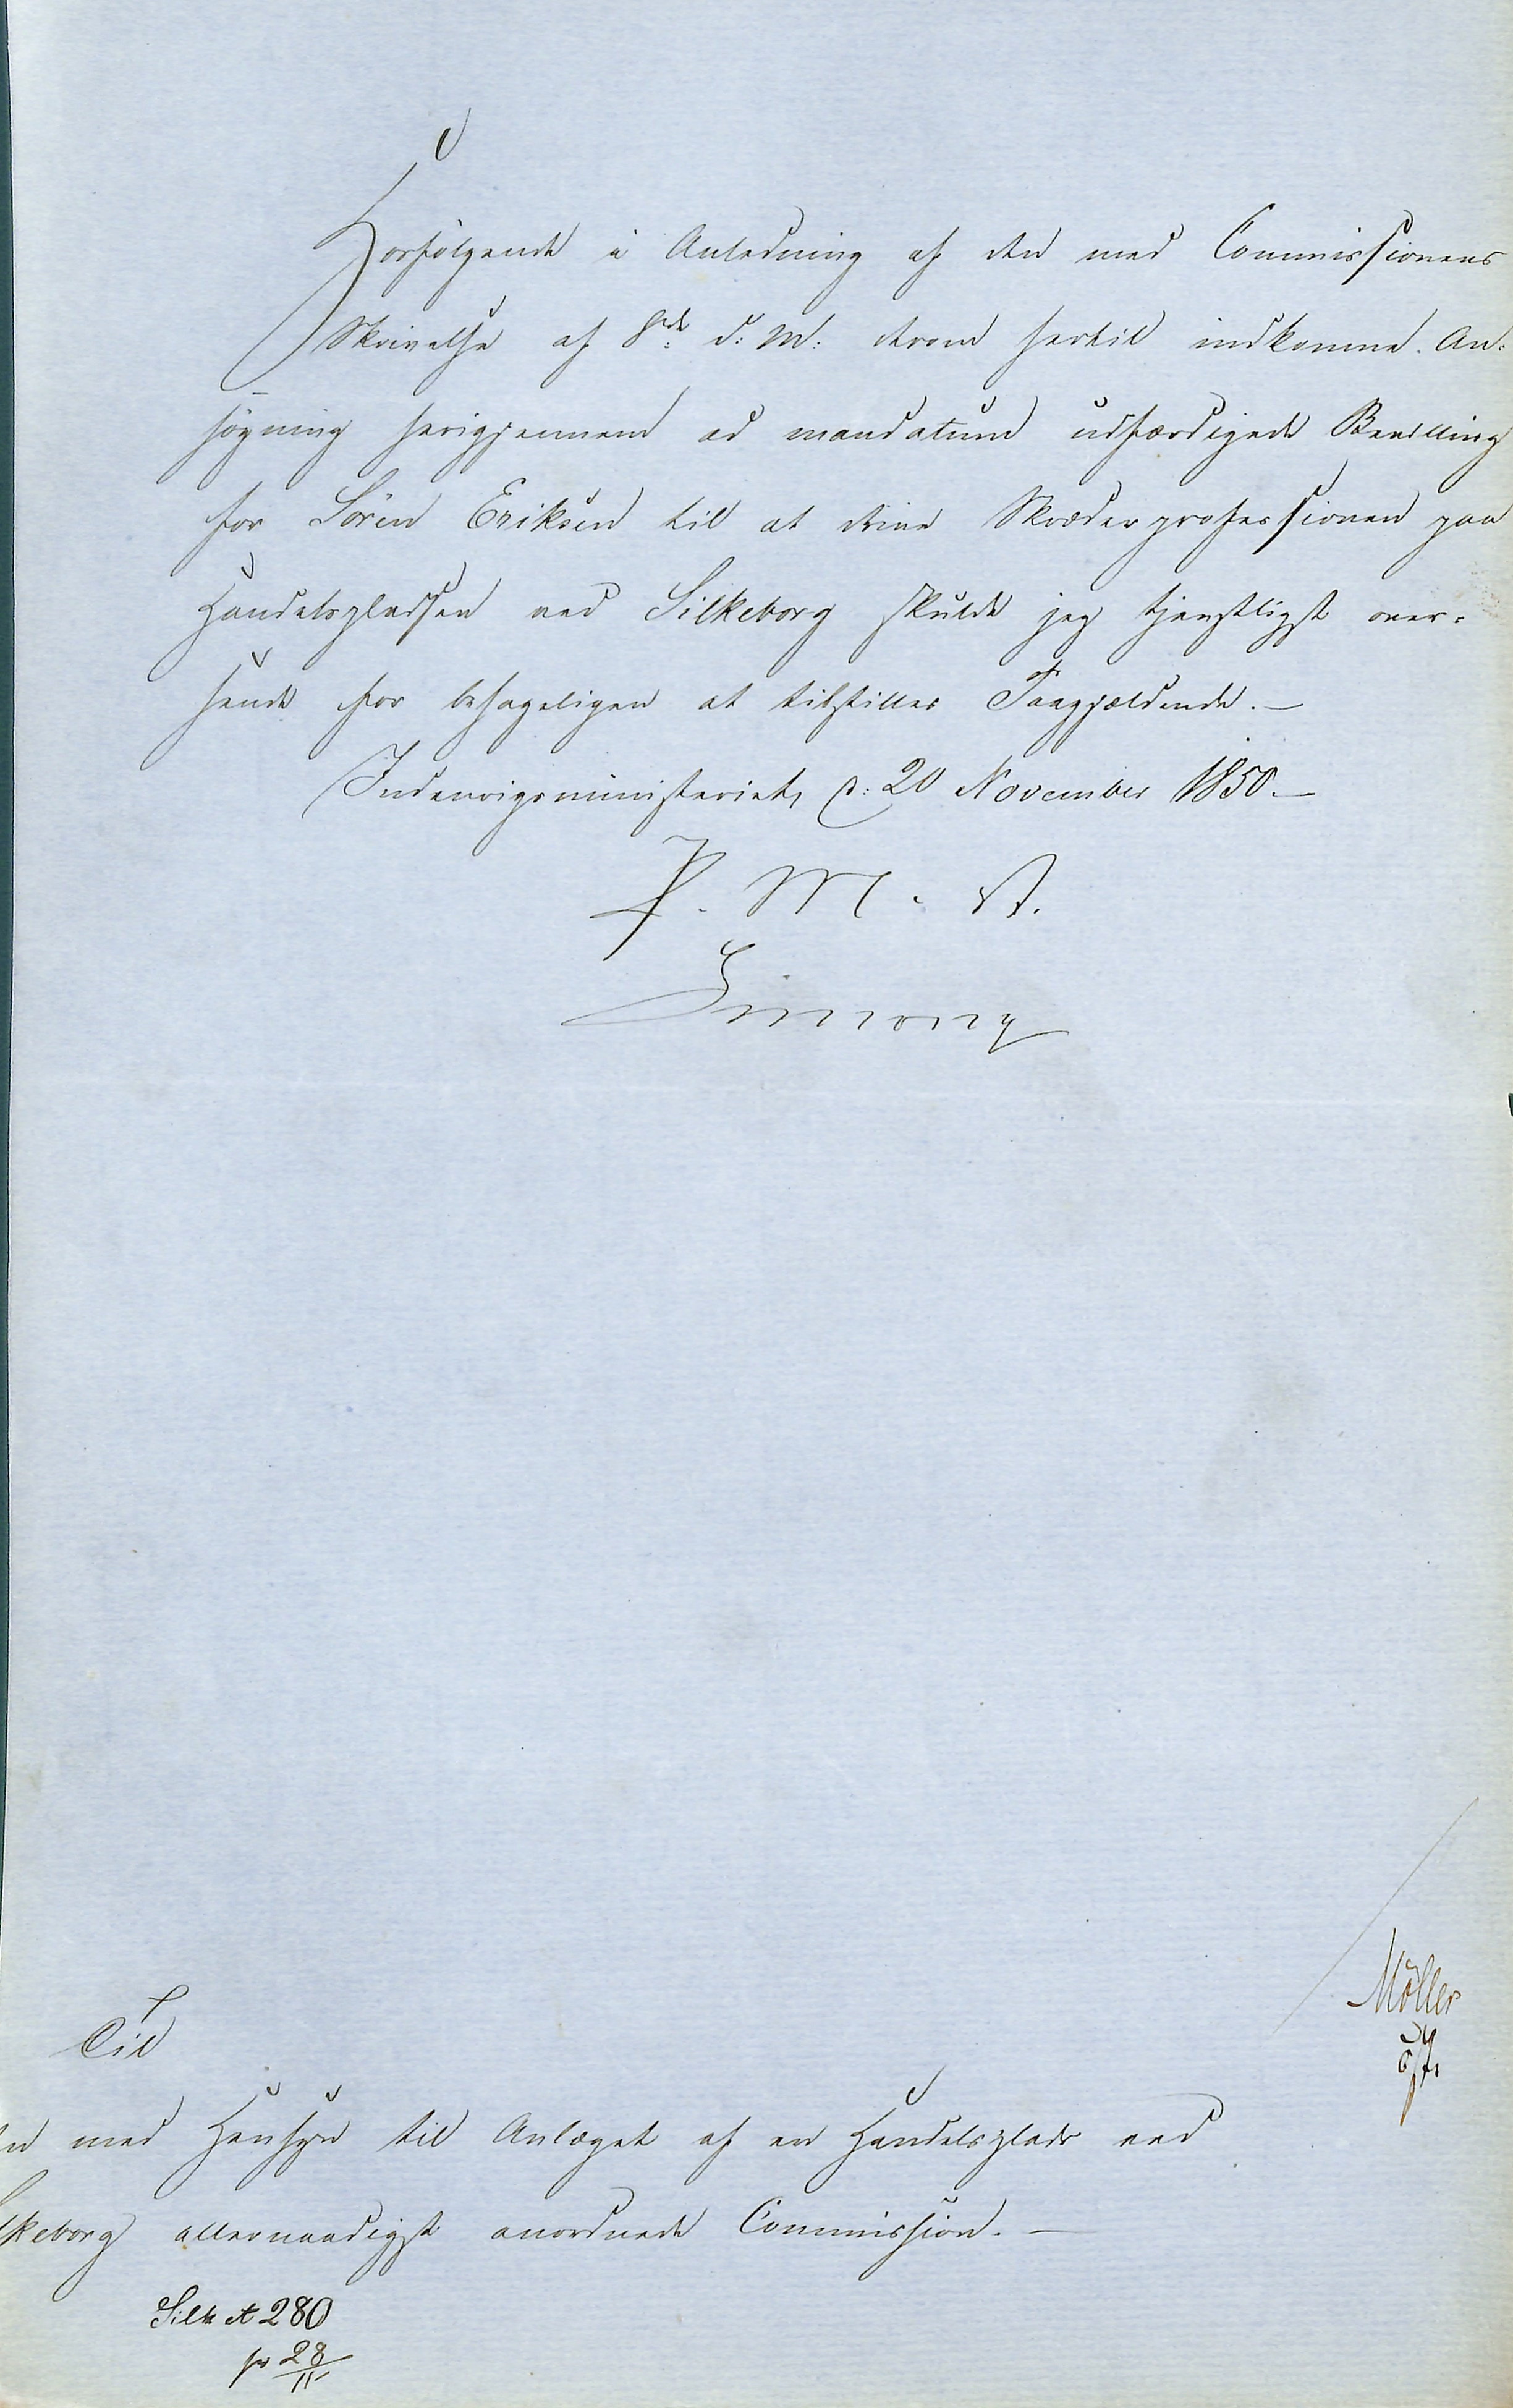 Hosfølgende i Anledning af den med Commissionens
Skrivelse af 8de d: M: derom hertil indkomne An-
søgning herigjennem ad mandatum udfærdigede Bevilling
for Sören Eriksen til at drive Skræderprofessionen paa
Handelspladsen ved Silkeborg skulde jeg tjenstligst over-
sende for behageligen at tilstilles Paagjældende. —
Indenrigsministeriet, d: 20 November 1850. —
F. M. A.
Simony
Möller
Til
en med Hensyn til Anlæget af en Handelsplads ved
lkeborg allernaadigst anordnede Commission. —
Silk A 280
pr 28/11